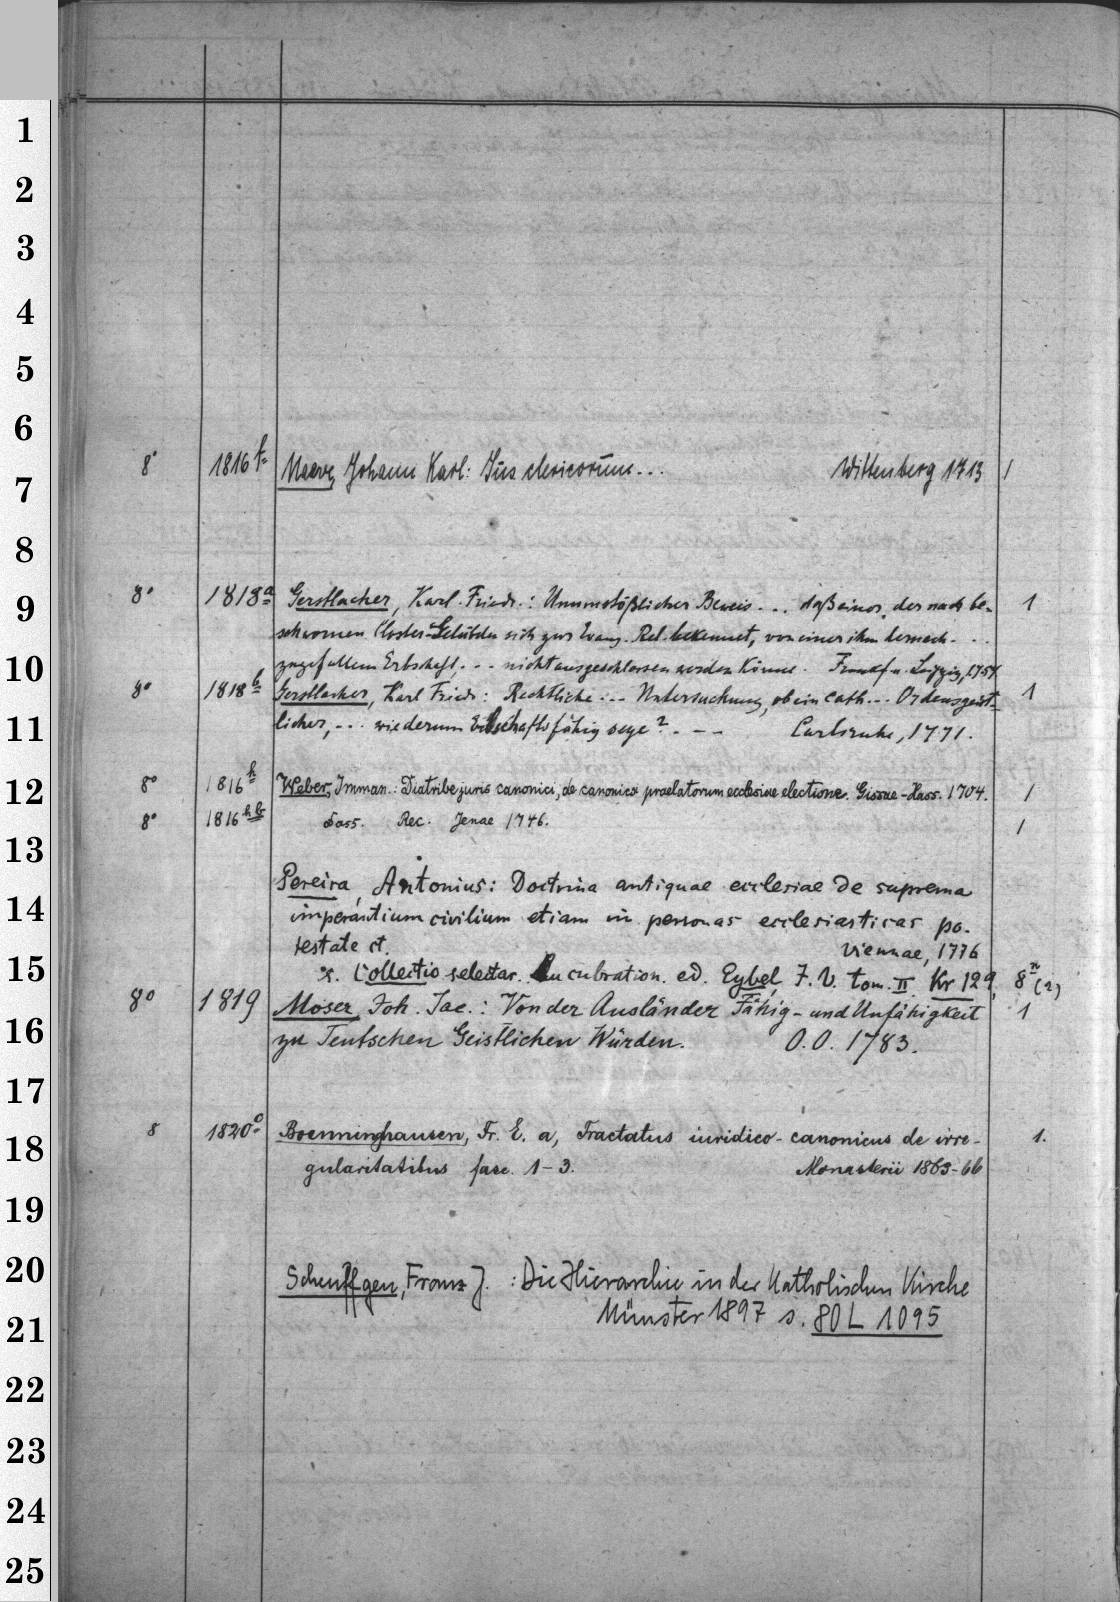 1
2
3
4
5
6
8° 1816 f. Naeve, Johann Karl: Jus clericorum... Wittenberg 1713 1
7
8
8° 1818 a Gerstlacher, Karl Friedr.: Unumstößlicher Beweis... daß einer, der nach be-
9
schwornen Kloster-Gelübden sich zur Evang. Rel. bekennet, von einer ihm hernach...
10 zugefallenen Erbschaft... nicht ausgeschlossen werden könne. Frankf. u. Leipzig, 1757 1
8° 1818 b Gerstlacher, Karl Friedr.: Rechtliche... Untersuchung, ob ein cath... Ordensgeist- 1
11 licher,... wiederum Erbschaftsfähig seye?... Carlsruhe, 1771.
12 8° 1816 h Weber, Imman.: Diatribe juris canonici, de canonica praelatorum ecclesiae electione. Gissae-Hass. 1704. 1
8° 1816 hb Dass. Rec. Jenae 1746. 1
13
Pereira, Antonius: Doctrina antiquae ecclesiae de suprema
14 imperantium civilium etiam in personas ecclesiasticas po-
testate ct. Viennae, 1776
15 s. Collectio selectar. Lucubration. ed. Eybel, J. V. tom. II Kr 129, 8 n (2)
8° 1819 Moser, Joh. Jac.: Von der Ausländer Fähig- und Unfähigkeit 1
16 zu Teutschen Geistlichen Würden. O.O. 1783.
17
18 8 1820 c Boenninghausen, Fr. E. a, Tractatus iuridico-canonicus de irre- 1.
gularitatibus fasc. 1-3. Monasterii 1863-66
19
20 Scheuffgen, Franz J. : Die Hierarchie in der Katholischen Kirche
21 Münster 1897 s. 80 L 1095
22
23
24
25